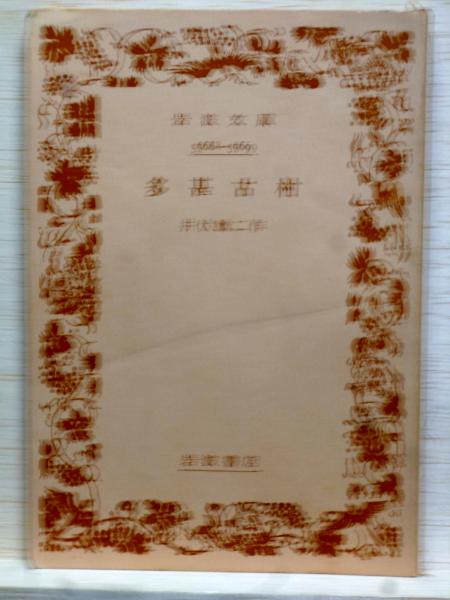 岩波文庫
5668—5669
多甚古村
井伏鱒二作
岩波書店